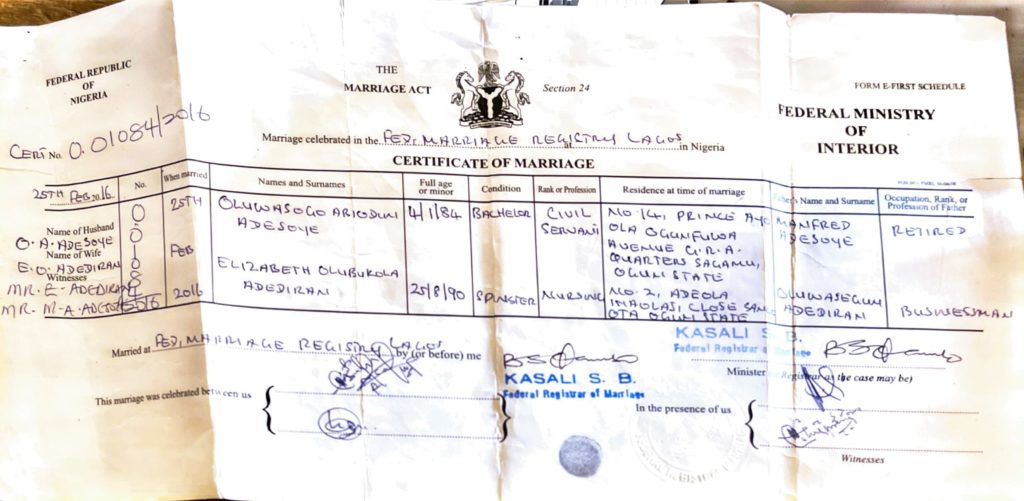 FEDERAL REPUBLIC
OF
NIGERIA
CERT No. 0.01084/2016
THE
MARRIAGE ACT
Section 24
FORM E-FIRST SCHEDULE
FEDERAL MINISTRY
OF
INTERIOR
Marriage celebrated in the FED. MARRIAGE REGISTRY LAGOS in Nigeria
CERTIFICATE OF MARRIAGE
25TH FEB 2016
Name of Husband
O. A. ADESOYE
Name of Wife
E. O. ADEDIRAN
Witnesses
MR. E. ADEDIRAN
MR. M-A.
No.
When married
Names and Surnames
Full age
or minor
Condition
Rank or Profession
Residence at time of marriage
Father's Name and Surname
Occupation, Rank, or
Profession of Father
25TH
FEB
2016
OLUWASOGO ABIODUN
ADESOYE
4/1/84
BACHELOR
CIVIL
SERVANT
NO 14, PRINCE AYO
OLA OGUNFUWA
AVENUE G.R.A.
QUARTERS SAGAMU,
OGUN STATE
MANFRED
ADESOYE
RETIRED
ELIZABETH OLUBUKOLA
ADEDIRAN
25/8/90
SPINSTER
NURSING
NO 2, ADEOLA
CLOSE SANGO
OTA OGUN STATE
OLUWASEGUN
ADEDIRAN
BUSINESSMAN
Married at FED. MARRIAGE REGISTRY LAGOS by (or before) me
KASALI S. B.
Federal Registrar of Marriage
KASALI S. B.
Federal Registrar of Marriage
Minister or Registrar (as the case may be)
This marriage was celebrated between us
In the presence of us
Witnesses